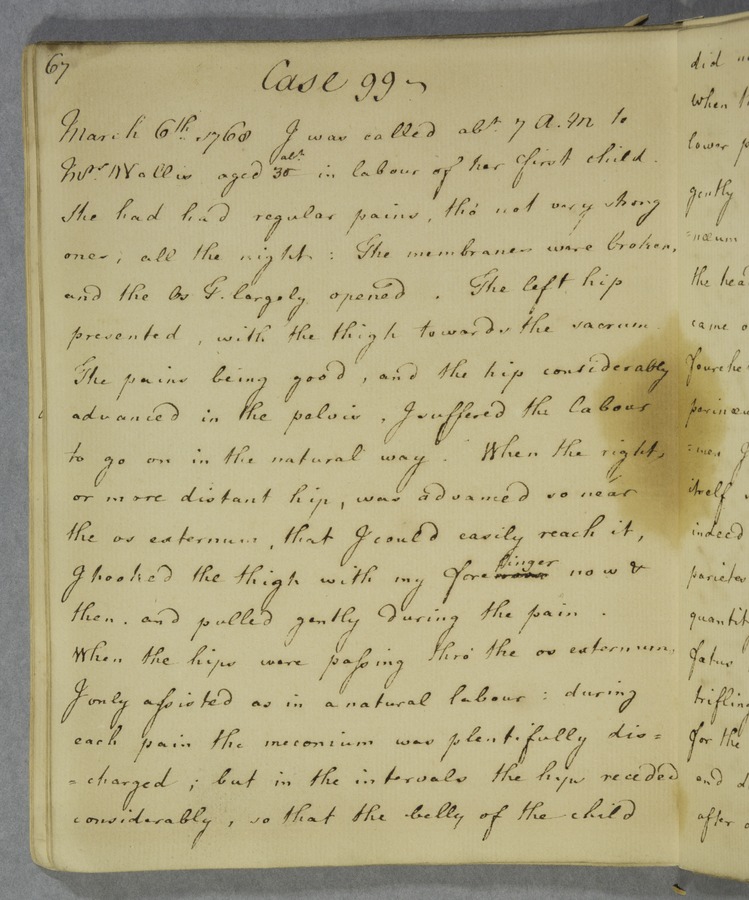 67
Case 99
March 6th. 1768 I was called abt. 7 A.M to
Mrs. Wallis aged abt. 30 in labour of her first child.
She had had regular pains, tho' not very strong
ones, all the night: The membranes were broken,
and the Os T. largely opened. The left hip
presented, with the thigh towards the sacrum.
The pains being good, and the hip considerably
advanced in the pelvis, I suffered the labour
to go on in the natural way. When the right,
or more distant hip, was advanced so near
the os externum, that I could easily reach it,
I hooked the thigh with my fore finger now &
then, and pulled gently during the pain.
When the hips were passing thro' the os externum,
I only assisted as in a natural labour: during
each pain the meconium was plentifully dis=
=charged; but in the intervals the hips receded
considerably, so that the belly of the child
did
when
lower
gently
=næum
the hea
came o
fourche
perinæu
=men I
itself
indeed
parietes
quantit
fœtus
trifling
for the
and d
after